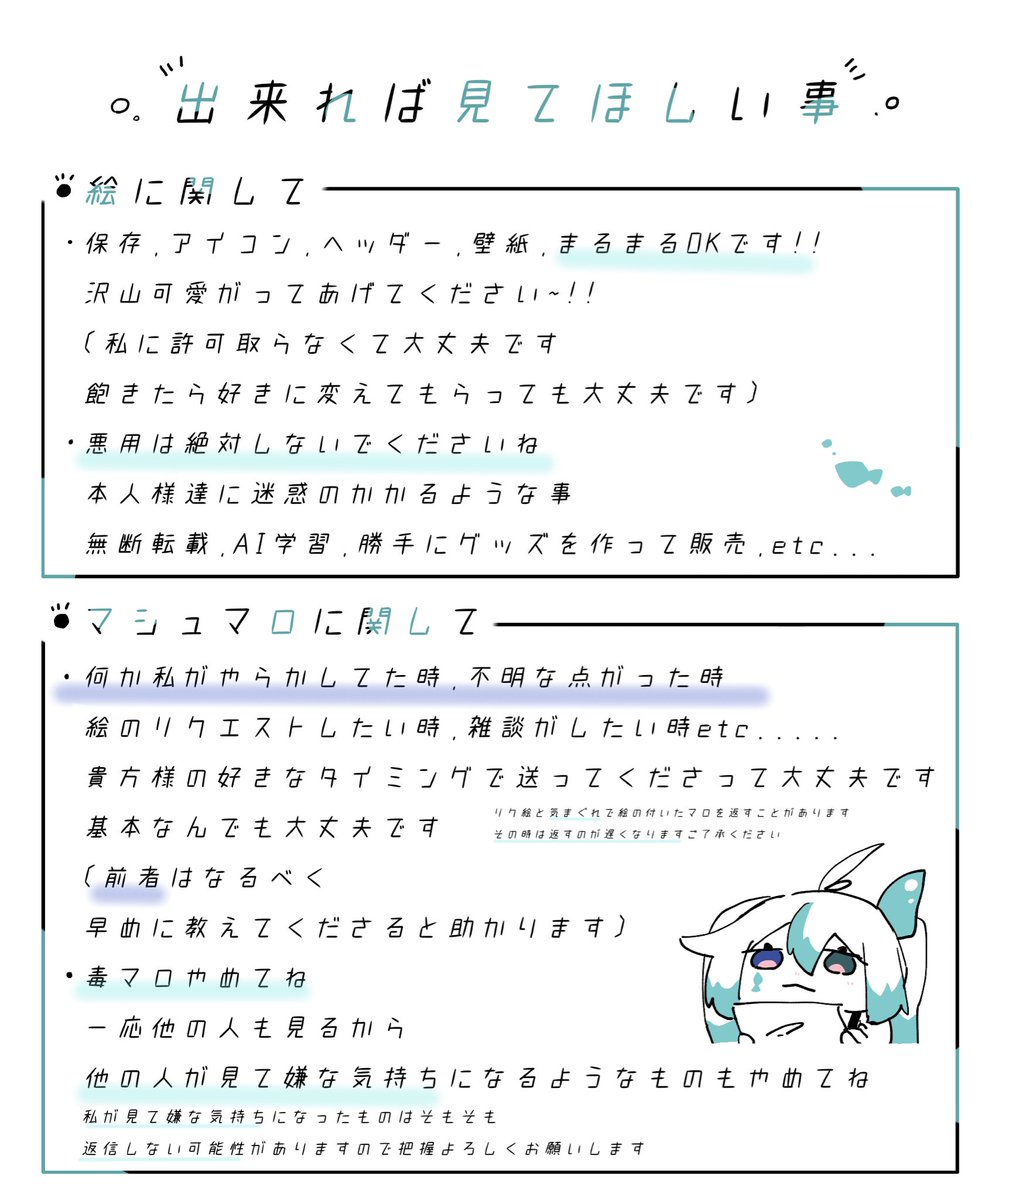 出来れば見てほしい事
絵に関して
・保存,アイコン,ヘッダー,壁紙,まるまるOKです!!
沢山可愛がってあげてください~!!
(私に許可取らなくて大丈夫です
飽きたら好きに変えてもらっても大丈夫です)
・悪用は絶対しないでくださいね
本人様達に迷惑のかかるような事
無断転載,AI学習,勝手にグッズを作って販売,etc...
マシュマロに関して
・何か私がやらかしてた時,不明な点がった時
絵のリクエストしたい時,雑談がしたい時etc.....
貴方様の好きなタイミングで送ってくださって大丈夫です
基本なんでも大丈夫です
リク絵と気まぐれで絵の付いたマロを返すことがあります
その時は返すのが遅くなりますご了承ください
(前者はなるべく
早めに教えてくださると助かります)
・毒マロやめてね
一応他の人も見るから
他の人が見て嫌な気持ちになるようなものもやめてね
私が見て嫌な気持ちになったものはそもそも
返信しない可能性がありますので把握よろしくお願いします